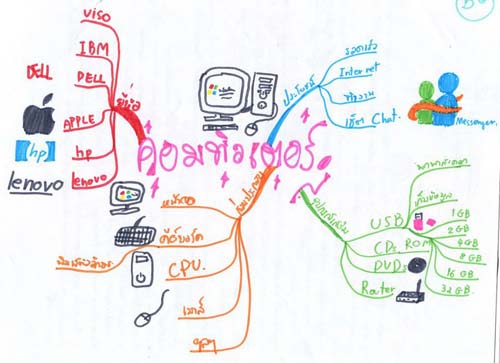 คอมพิวเตอร์
ยี่ห้อ
VISO
IBM
DELL
APPLE
hp
lenovo
DELL
hp
lenovo
ประโยชน์
รวดเร็ว
Internet
ทำงาน
เช็ต Chat.
Messenger.
ส่วนประกอบ
หน้าจอ
คีย์บอร์ด
CPU.
เมาส์
อุปกรณ์เสริม
USB
พกพาสะดวก
เก็บข้อมูล
1 GB
2 GB
4 GB
8 GB
16 GB
32 GB.
CDs ROM
DVDs
Router